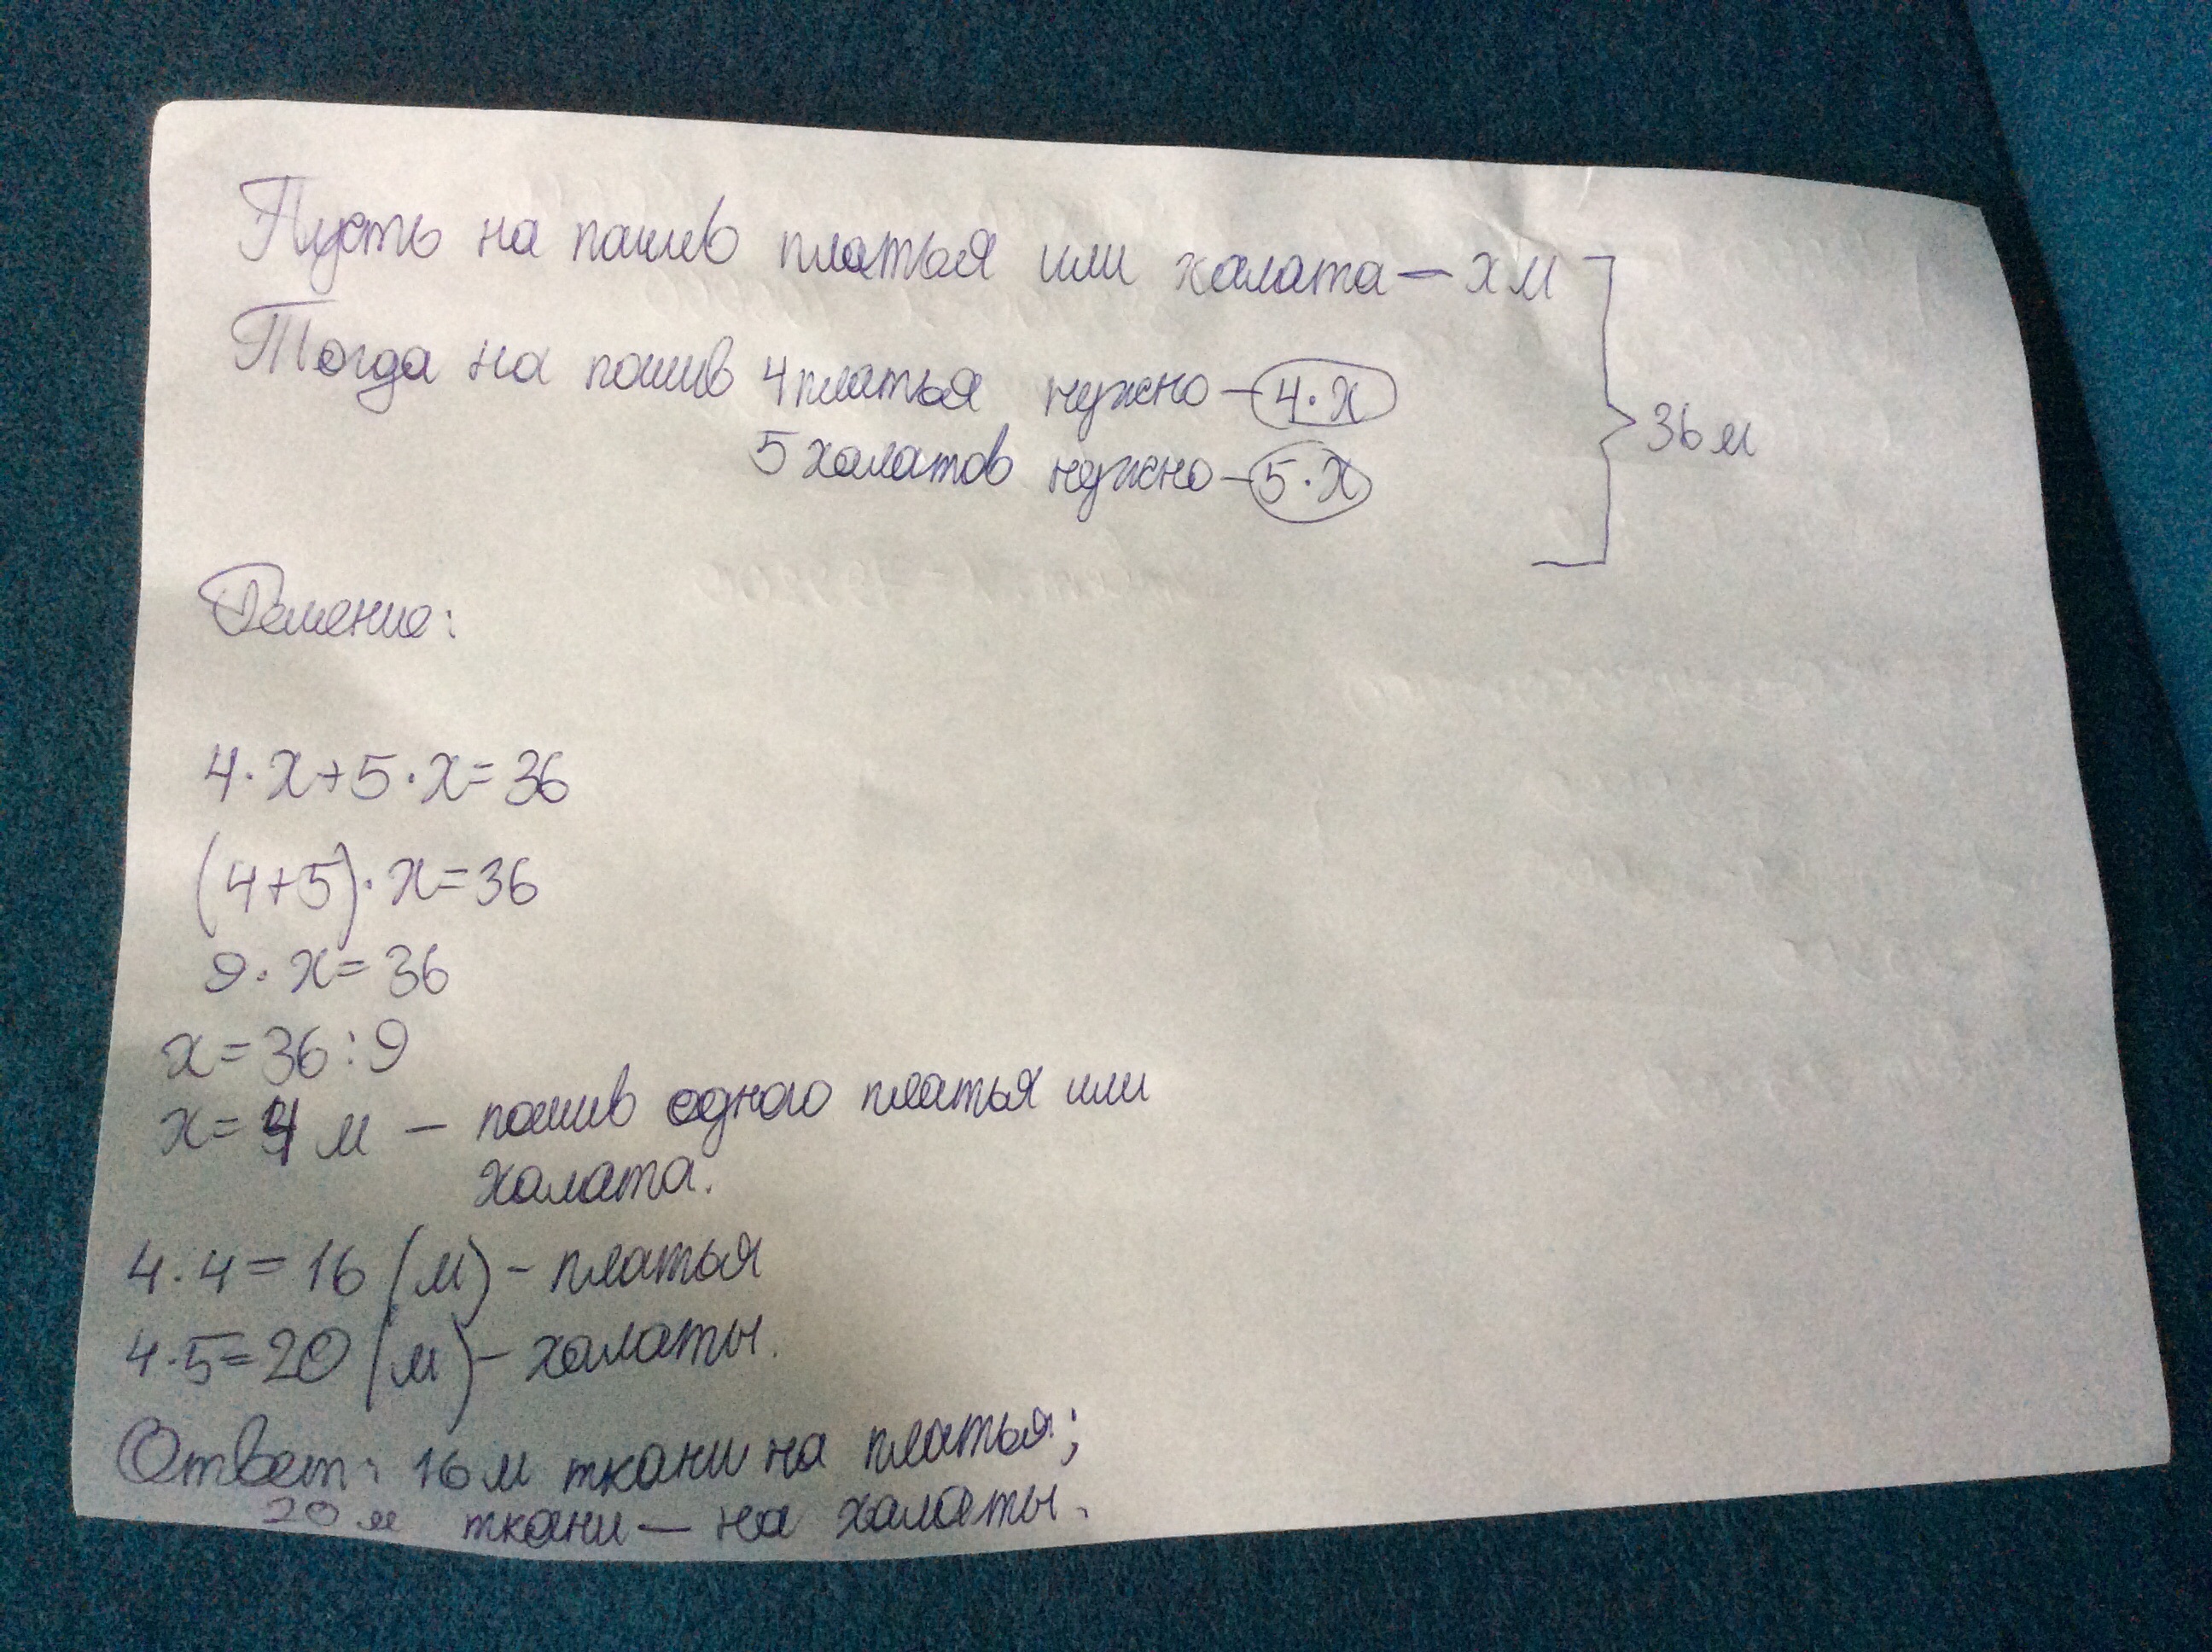 Пусть на пошив платья или халата — х м
Тогда на пошив 4 платья нужно — 4·х
36 м
5 халатов нужно — 5·х
Решение:
4·х+5·х=36
(4+5)·х=36
9·х=36
х=36:9
х=4 м — пошив одного платья или
халата.
4·4=16 (м) - платья
4·5=20 (м) - халаты.
Ответ: 16 м ткани на платья;
20 м ткани — на халаты.